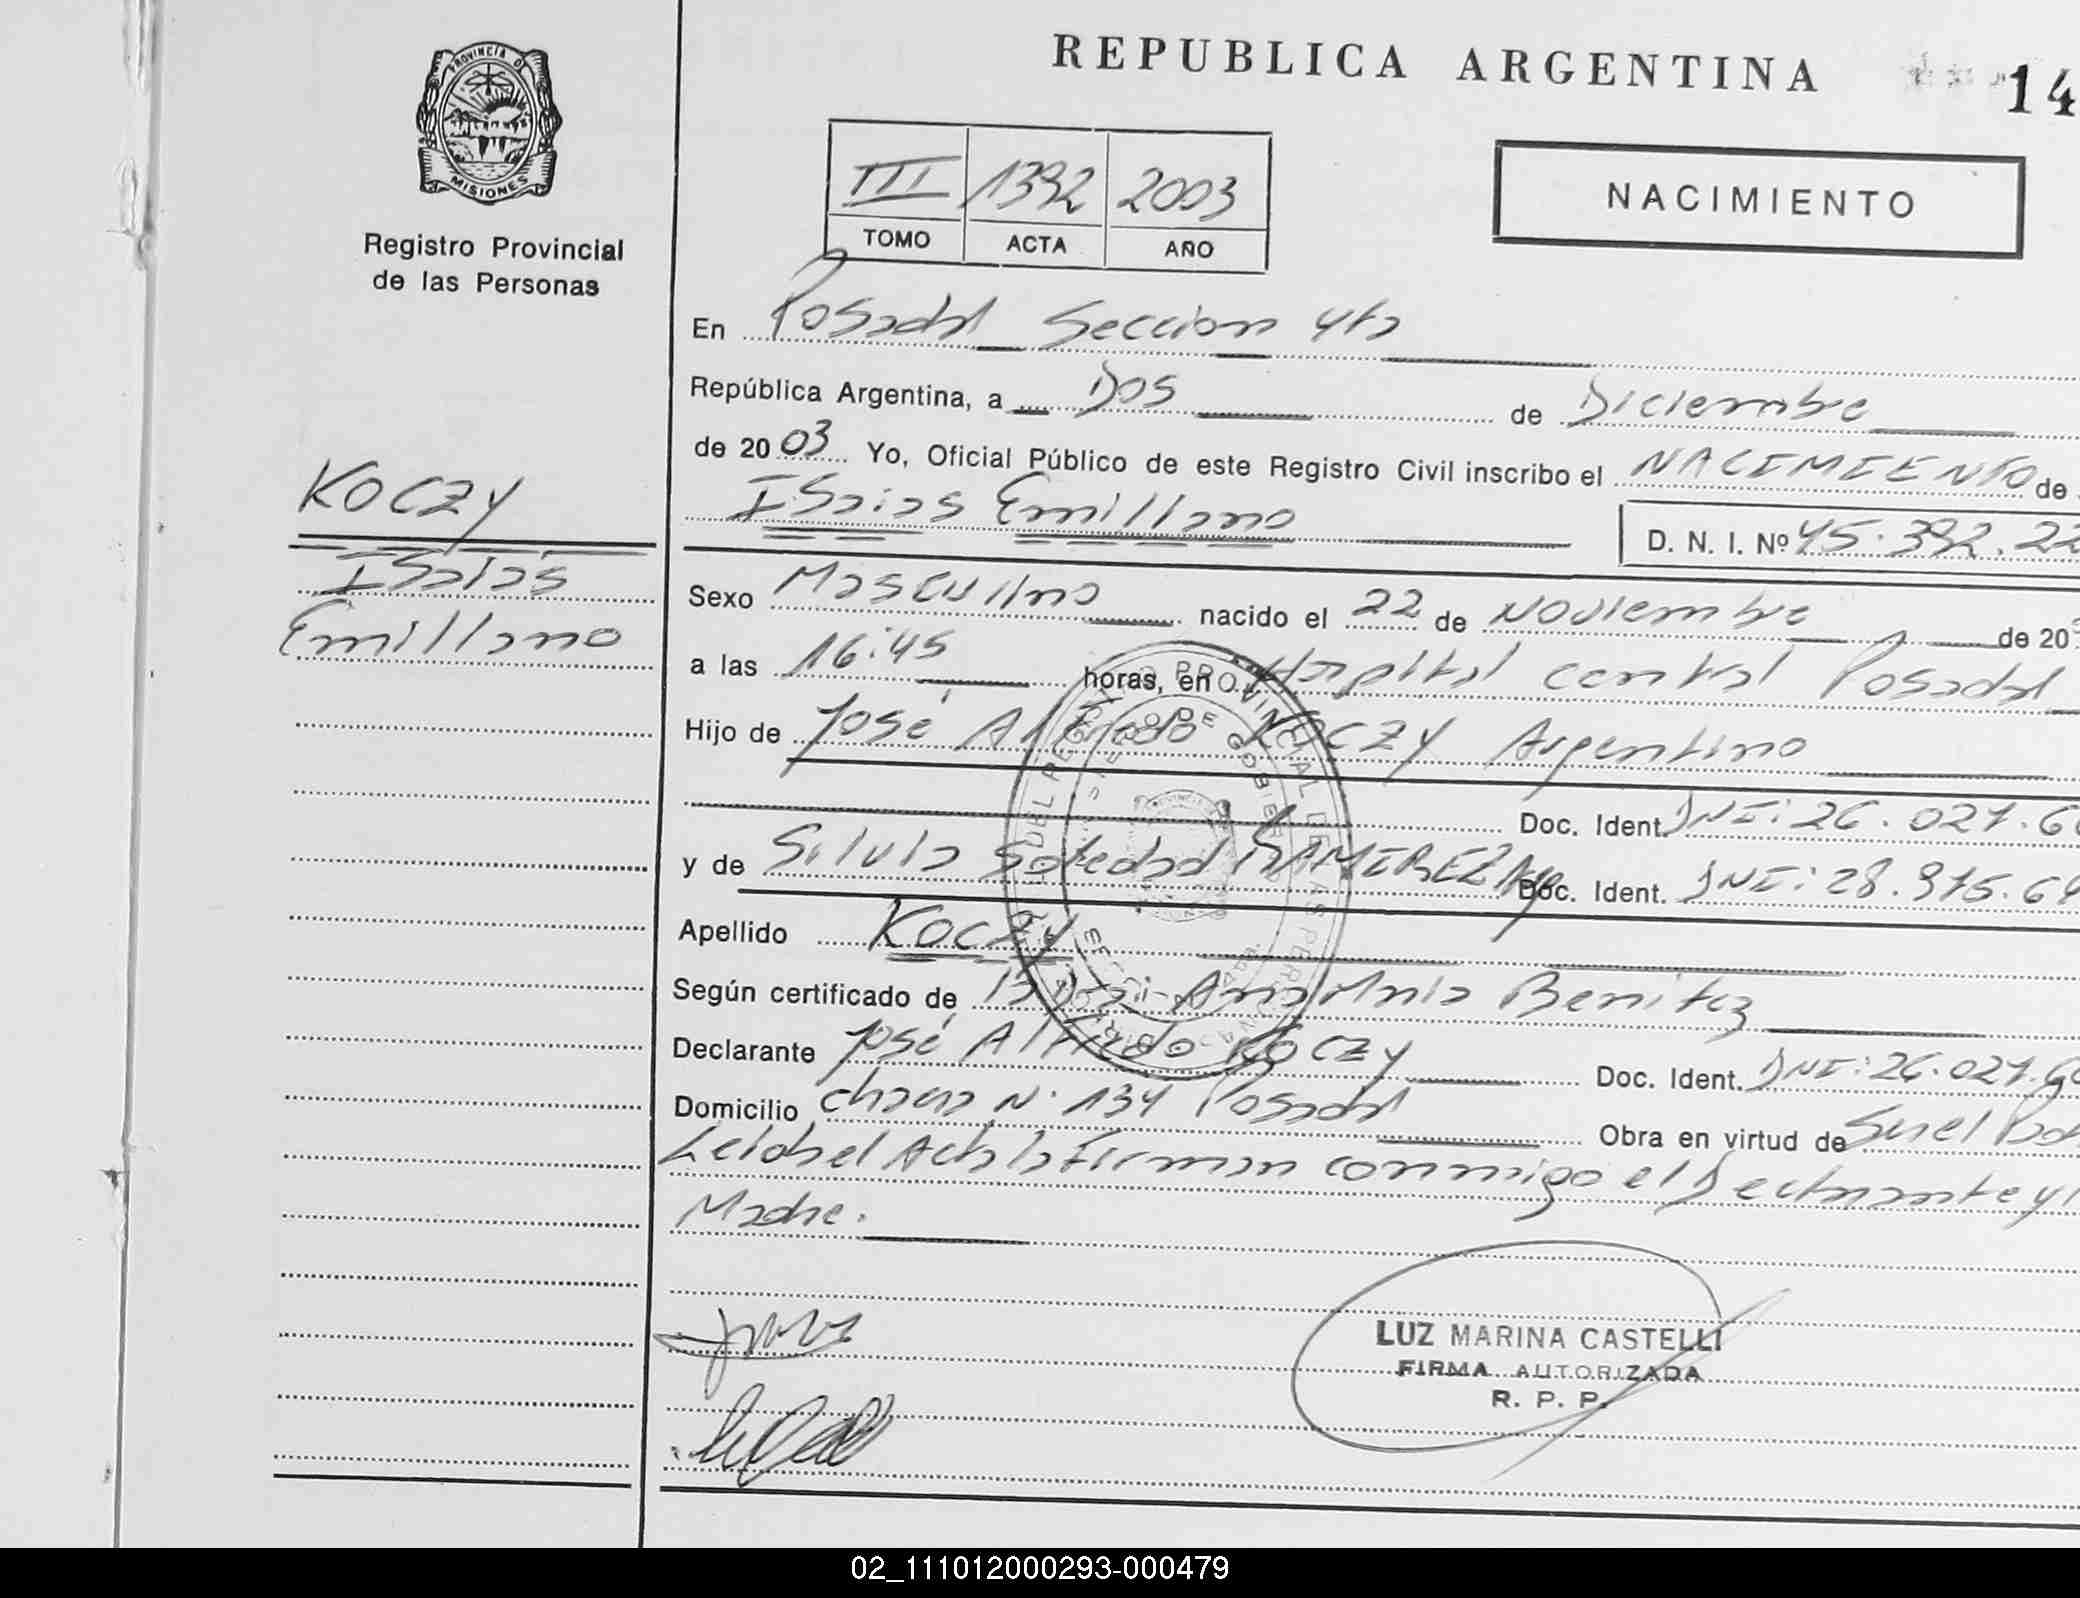 REPUBLICA ARGENTINA
14
PROVINCIA DE
MISIONES
Registro Provincial
de las Personas
III 1392 2003
TOMO ACTA AÑO
NACIMIENTO
En Posadas Seccion 4ta
República Argentina, a Dos de Diciembre
de 2003 Yo, Oficial Público de este Registro Civil inscribo el NACIMIENTO de
Isaias Emiliano
D. N. I. Nº 45.392.22
KOCZY
Isaías
Emiliano
Sexo Masculino nacido el 22 de Noviembre de 20
a las 16:45 horas, en Hospital central Posadas
Hijo de José Alfredo KOCZY Argentino
Doc. Ident. DNI: 26.027.6
y de Silvia Soledad RAMIREZ Doc. Ident. DNI: 28.375.6
Apellido KOCZY
Según certificado de Ana María Benitez
Declarante José Alfredo KOCZY Doc. Ident. DNI: 26.027.6
Domicilio Chacra N° 134 Posadas Obra en virtud de
Leida el Acta la Firman conmigo el Declarante y
Madre.
LUZ MARINA CASTELLI
FIRMA AUTORIZADA
R. P. P.
02_111012000293-000479